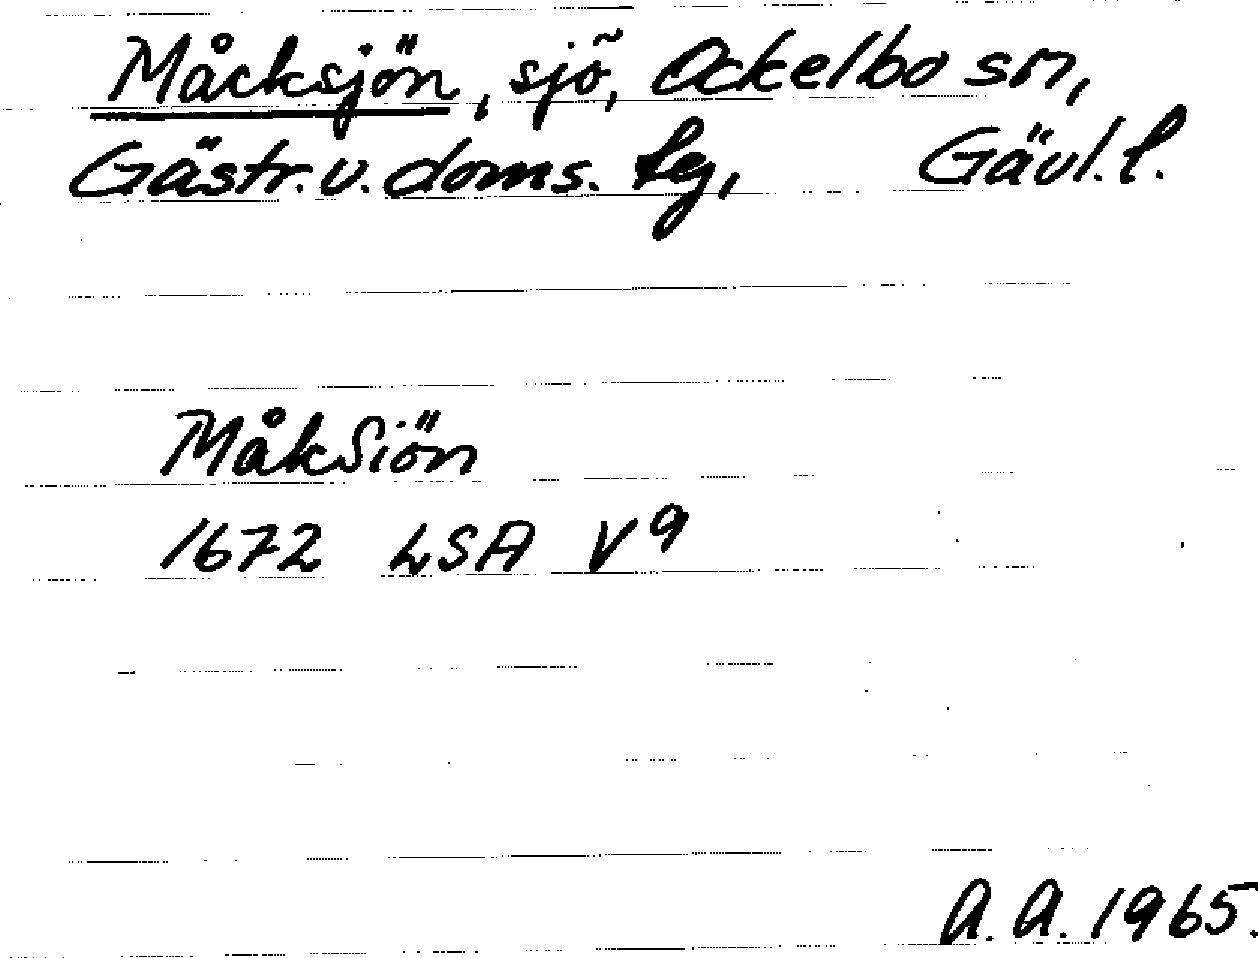 Måcksjön, sjö, Ockelbo sn,
Gästr. v. doms. lg, Gävl. l.
Måksiön
1672 LSA V 9
A. A. 1965.